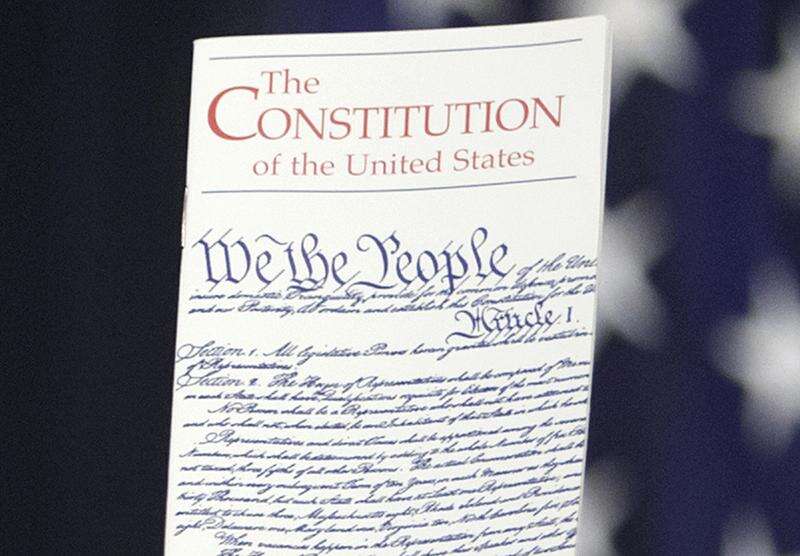 The
CONSTITUTION
of the United States
We the People of the Uni
insure domestic Tranquility, provide for the common defence, promo
and our Posterity, do ordain and establish this Constitution for the U
Article I.
Section 1. All legislative Powers herein granted shall be vested in
of Representatives.
Section 2. The House of Representatives shall be composed of Mem
in each State shall have Qualifications requisite for Electors of the most numerous
No Person shall be a Representative who shall not have attained to
and who shall not, when elected, be an Inhabitant of that State in which he
Representatives and direct Taxes shall be apportioned among the several
Numbers, which shall be determined by adding to the whole Number of free
not taxed, three fifths of all other Persons. The actual Enumeration shall be
and within every subsequent Term of ten Years, in such Manner as they shall
thirty Thousand, but each State shall have at Least one Representative; and
entitled to chuse three, Massachusetts eight, Rhode Island and Providence
eight, Delaware one, Maryland six, Virginia ten, North Carolina five,
When vacancies happen in the Representation from any State, the